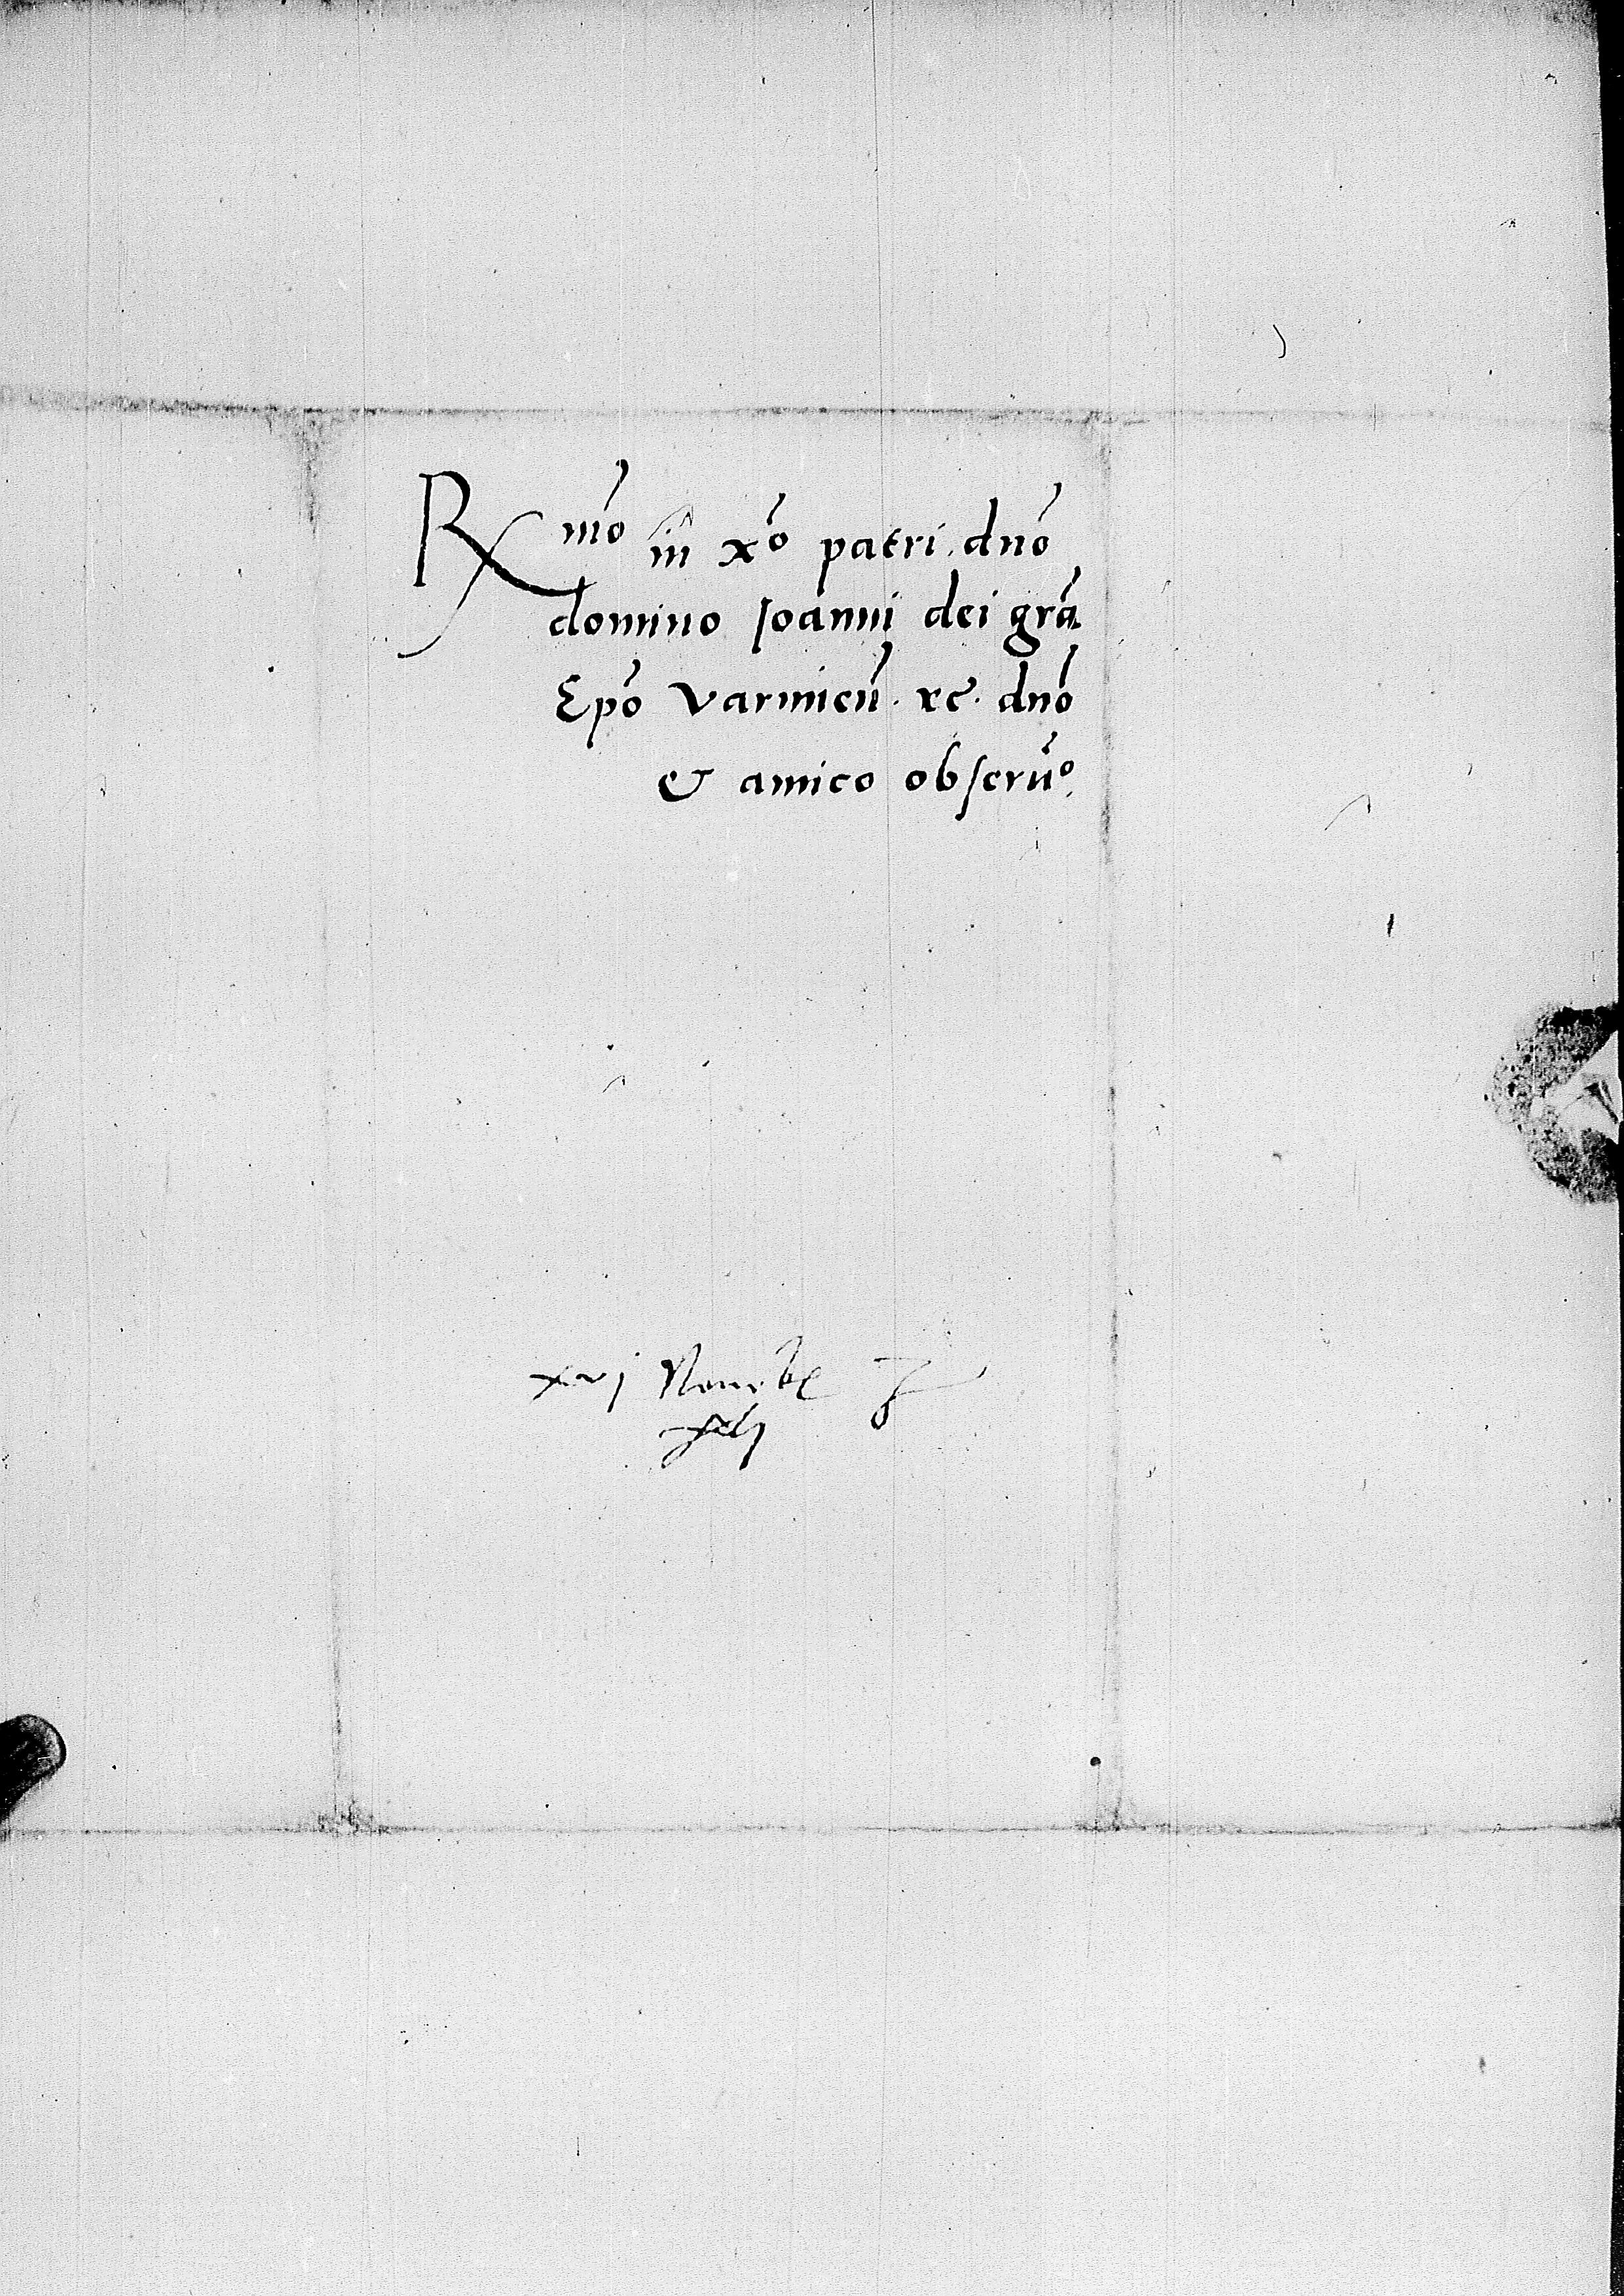 Rmo in xo patri dno
domino Joanni dei gra
Epo Varmien. &c. dno
& amico obseruo.
xvj Nouebr